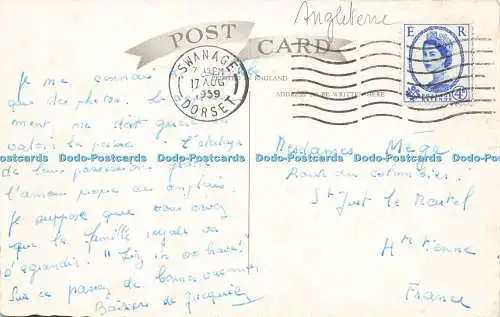 Angleterre
POST CARD
E R
POSTAGE REVENUE
SWANAGE
17 AUG
1959
DORSET
ENGLAND
ADDRESS TO BE WRITTEN HERE
Je me connais
que des photos. le
ment ma doit
valoir la peine. L'étalage
de leurs possessions
l'amour propre des anglais.
Je suppose que vous savez
que la famille royale va
s'agrandir. "Liz in to have"
Sur ce passez de bonnes vacances
Baisers de Jacquie
Mesdames Mège
Route des
St Just le Martel
Hte Vienne
France
Dodo-Postcards Dodo-Postcards Dodo-Postcards Dodo-Postcards Dodo-Postcards Dodo-Postcards